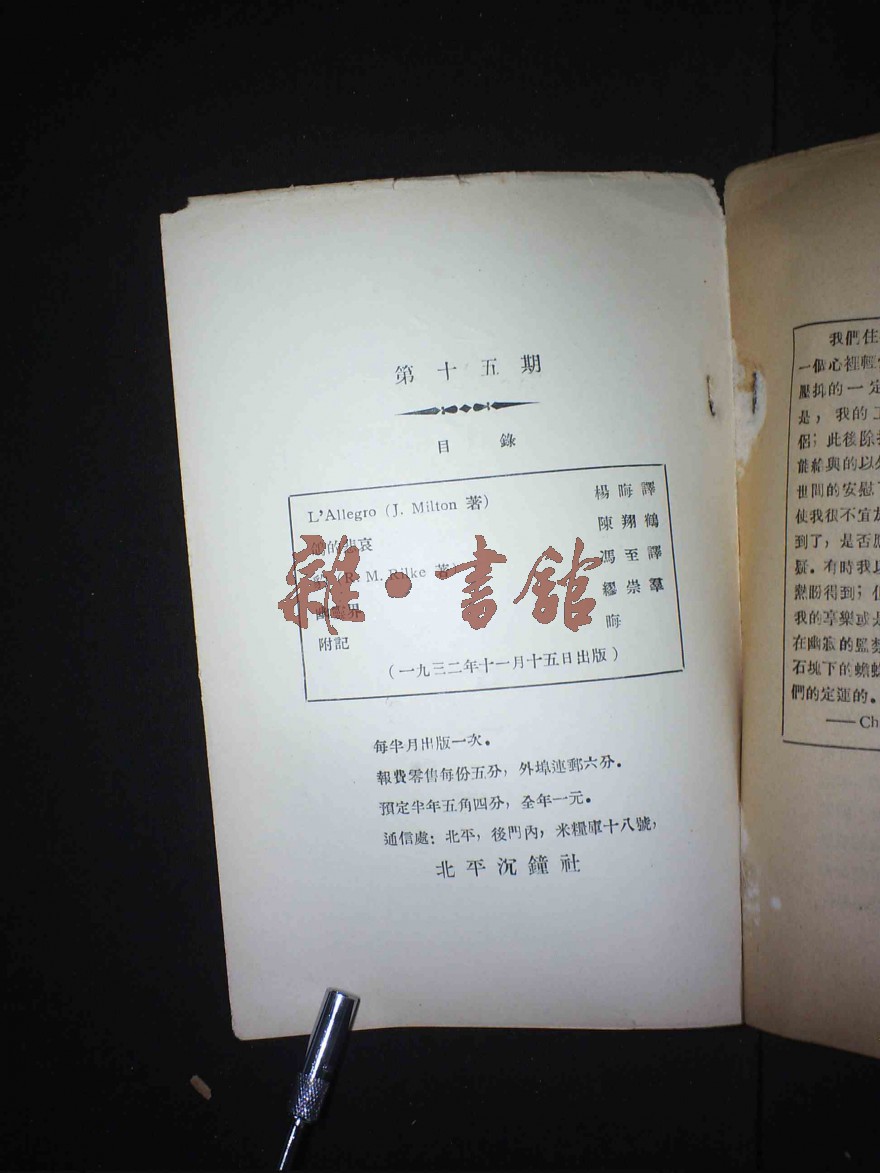 第十五期
目錄
L'Allegro (J. Milton 著) 楊晦譯
的悲哀 陳翔鶴
(R. M. Rilke 著) 馮至譯
界 繆崇羣
附記 晦
(一九三二年十一月十五日出版)
每半月出版一次。
報費零售每份五分，外埠連郵六分。
預定半年五角四分，全年一元。
通信處：北平，後門內，米糧庫十八號，
北平沉鐘社
雜·書館
我們住
一個心裡輕
壓抑的一定
是，我的工
侶；此後除
能給與的以外
世間的安慰
使我很不宜
到了，是否應
疑。有時我以
熱盼得到；但
我的享樂或是
在幽寂的監禁
石塊下的蟾蜍
們的定運的。
——Ch